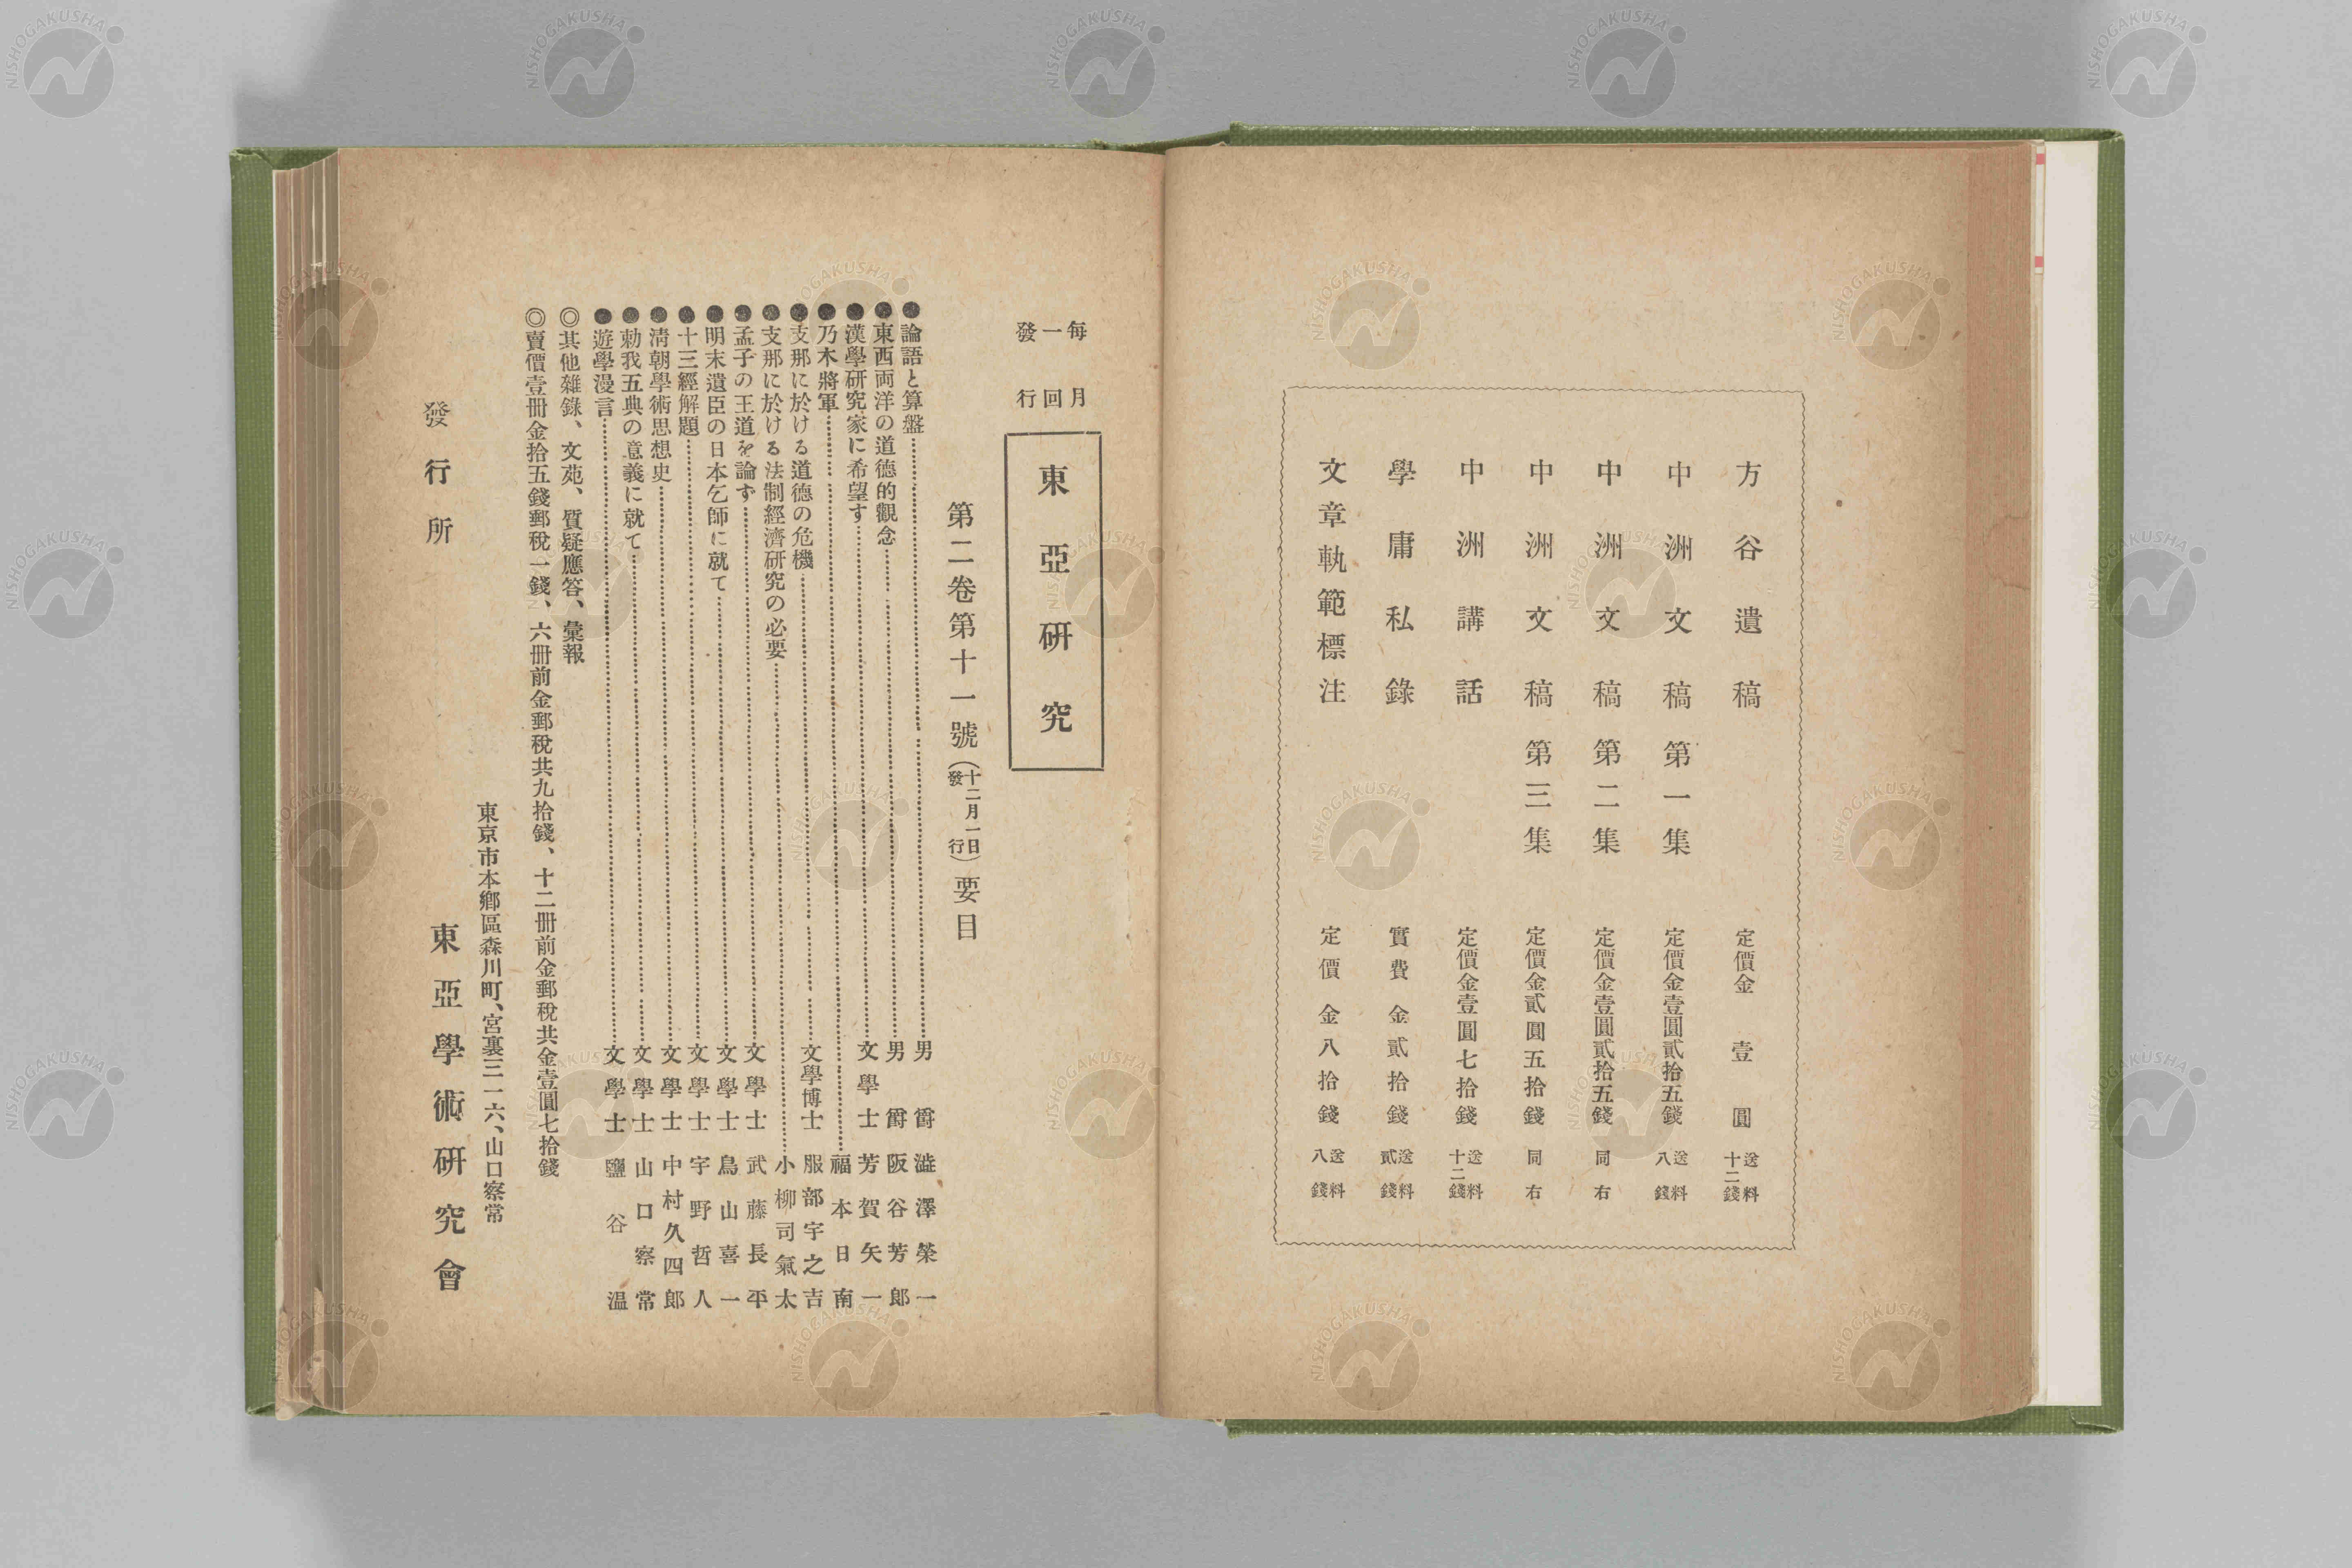 方谷遺稿 定價金壹圓 送料十二錢
中洲文稿第一集 定價金壹圓貳拾五錢 送料八錢
中洲文稿第二集 定價金壹圓貳拾五錢 同右
中洲文稿第三集 定價金貳圓五拾錢 同右
中洲講話 定價金壹圓七拾錢 送料十二錢
學庸私錄 實費金貳拾錢 送料貳錢
文章軌範標注 定價金八拾錢 送料八錢
每月一回發行
東亞硏究
第二卷第十一號(十二月一日發行)要目
●論語と算盤 男爵 澁澤榮一
●東西両洋の道德的觀念 男爵 阪谷芳郎
●漢學硏究家に希望す 文學士 芳賀矢一
●乃木將軍 福本日南
●支那に於ける道德の危機 文學博士 服部宇之吉
●支那に於ける法制經濟硏究の必要 小柳司氣太
●孟子の王道を論ず 文學士 武藤長平
●明末遺臣の日本乞師に就て 文學士 鳥山喜一
●十三經解題 文學士 宇野哲人
●淸朝學術思想史 文學士 中村久四郞
●勅我五典の意義に就て 文學士 山口察常
●遊學漫言 文學士 鹽谷溫
◎其他雜錄、文苑、質疑應答、彙報
◎賣價壹冊金拾五錢郵稅一錢、六冊前金郵稅共九拾錢、十二冊前金郵稅共金壹圓七拾錢
東京市本鄕區森川町、宮裏三一六、山口察常
發行所 東亞學術硏究會
NISHOGAKUSHA